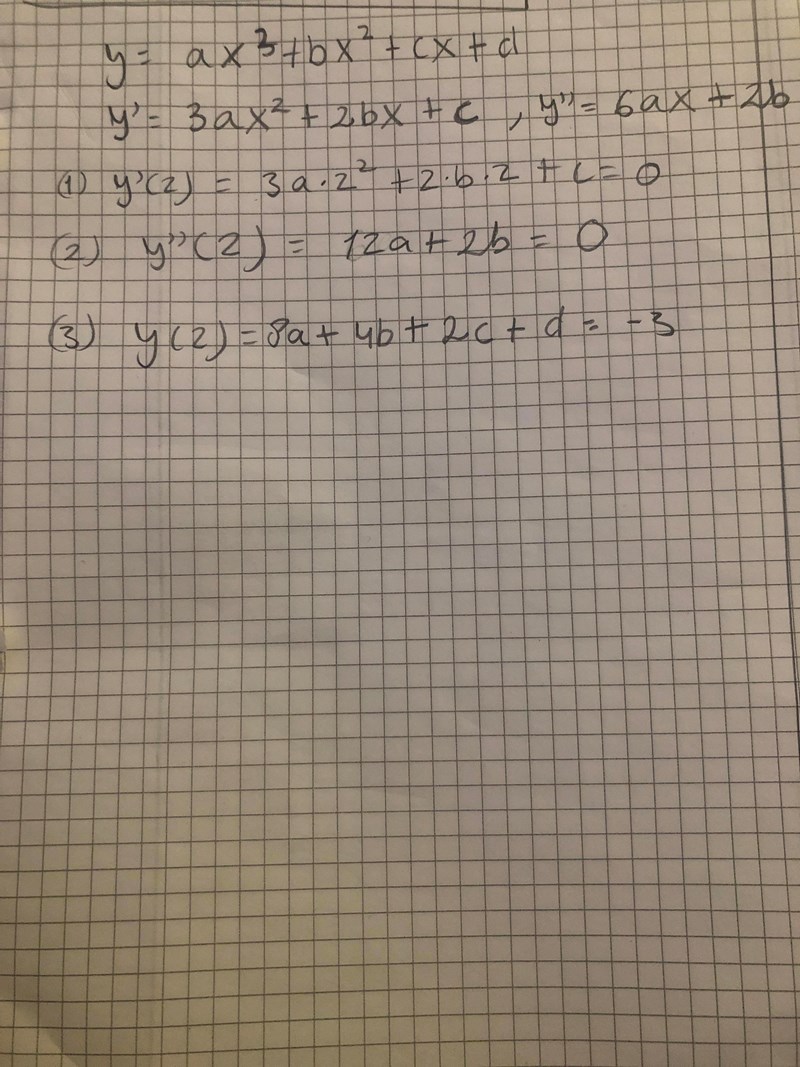 y = ax³+bx²+cx+d
y' = 3ax² + 2bx + c , y'' = 6ax + 2b
(1) y'(2) = 3a·2² +2·b·2 + c = 0
(2) y''(2) = 12a+2b = 0
(3) y(2) = 8a+4b+2c+d = -3